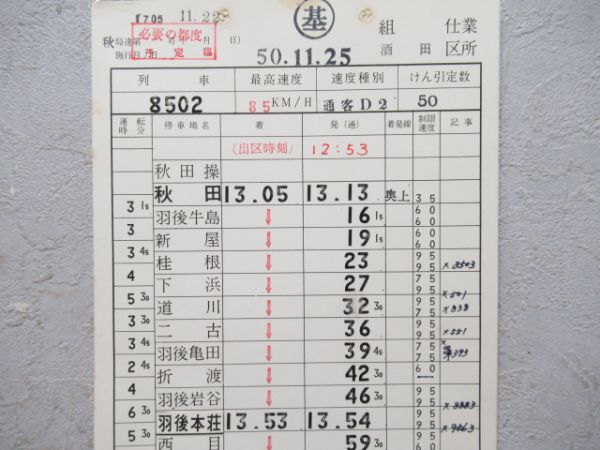 1705 11.22
秋局達第 号( 月 日)
施行日
必要の都度
所定臨
基
組 仕業
50.11.25 酒田 区所
列車 最高速度 速度種別 けん引定数
8502 85KM/H 通客D2 50
運転時分 停車場名 着 発(通) 着発線 制限速度 記事
(出区時刻) 12:53
秋田操
秋田 13.05 13.13 奥上 35
3 1s 羽後牛島 ↓ 16 1s 60 60
3 新屋 ↓ 19 1s 60 60
3 4s 桂根 ↓ 23 95 95 ×3503
4 下浜 ↓ 27 75 95
5 30 道川 ↓ 32 30 95 95 ×501 ×838
3 30 二古 ↓ 36 95 95 ×551
3 4s 羽後亀田 ↓ 39 4s 75 75
2 4s 折渡 ↓ 42 30 60
4 羽後岩谷 ↓ 46 30 95 95 ×3883
6 30 羽後本荘 13.53 13.54 95 95
5 30 西目 ↓ 59 30 95